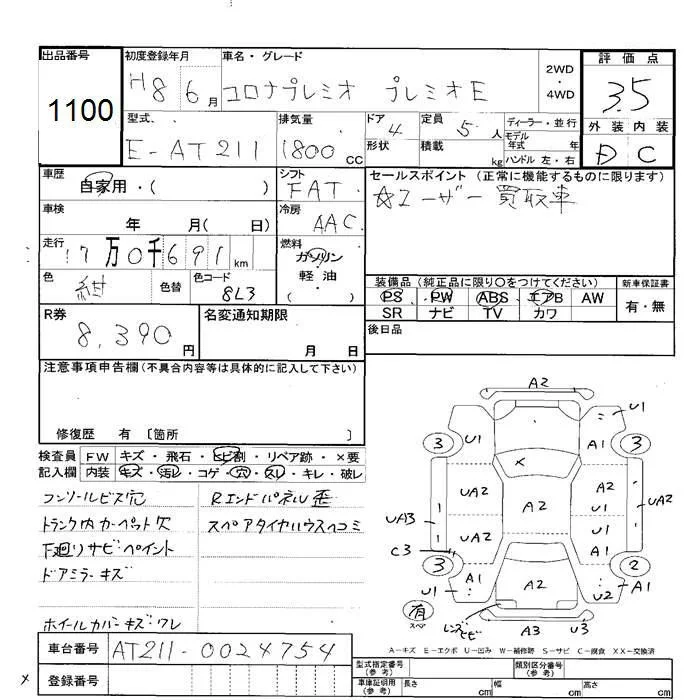 出品番号 初度登録年月 車名・グレード 2WD ・ 4WD 評価点
1100 H8 6月 コロナプレミオ プレミオE 3.5
型式. 排気量 ドア 4 定員 5 人 ディーラー・並行 外装 内装
E-AT211 1800 CC 形状 積載 kg モデル年式 年 ハンドル 左・右 D C
車歴 自家用・( ) シフト FAT セールスポイント (正常に機能するものに限ります)
☆ユーザー買取車
車検 年 月( 日) 冷房 AAC
走行 17万0千691km 燃料 ガソリン 軽油 ( )
色 紺 色替 色コード 8L3
装備品 (純正品に限り〇をつけてください) 新車保証書
PS PW ABS エアB AW 有・無
SR ナビ TV カワ
R券 8,390円 名変通知期限 月 日 後日品
注意事項申告欄(不具合内容等は具体的に記入して下さい)
修復歴 有 〔箇所 〕
検査員 FW キズ・飛石・ヒビ割・リペア跡・×要
記入欄 内装 キズ・汚レ・コゲ・穴・スレ・キレ・破レ
コンソールビス穴 Rエンドパネル歪
トランク内カーペット欠 スペアタイヤハウスヘコミ
下廻りサビペイント
ドアミラーキズ
ホイールカバーキズ・ワレ
A2
U1 3 U1 A1 3
×
UA2 A2 A2 UA2
UA3 UA2 U1 U1
C3 3 A1 A2 2
U1 U2 A1
有 スペ レンズヒビ A3 U3
A-キズ E-エクボ U-凹み W-補修跡 S-サビ C-腐食 XX-交換済
車台番号 AT211-0024754
登録番号
型式指定番号 (参考) 類別区分番号 (参考)
車庫証明用 (参考) 長さ cm 幅 cm 高さ cm
×